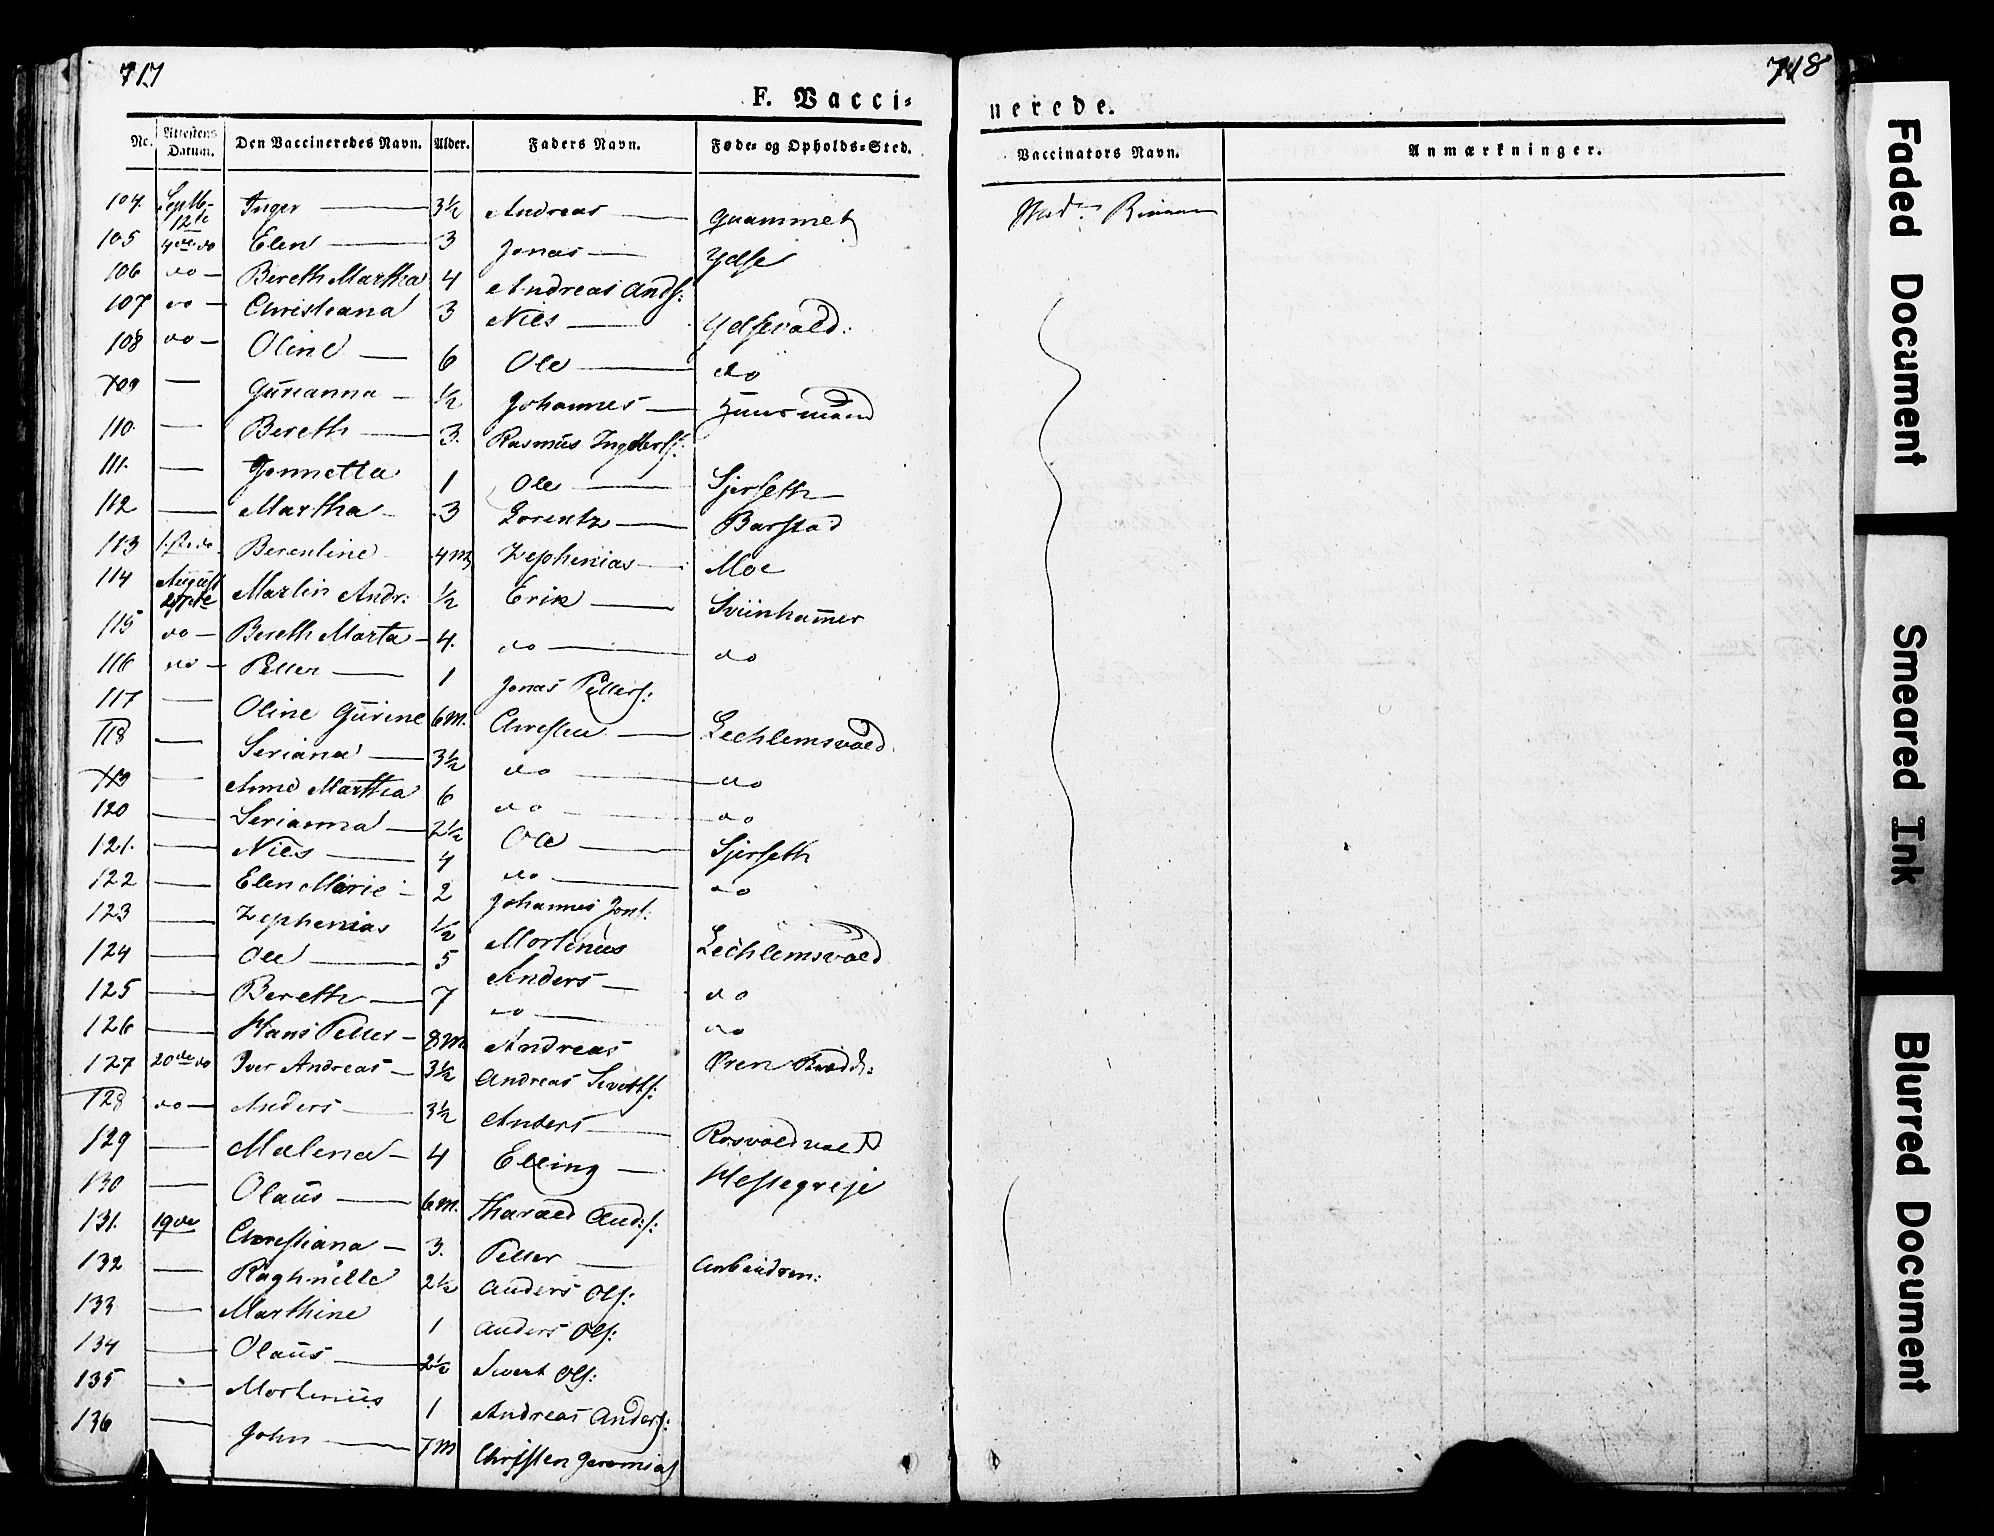 717
718
F. Vacci=
nerede.
No. Attestens Datum. Den Vaccineredes Navn. Alder. Faders Navn. Føde- og Opholds-Sted.
Vaccinators Navn. Anmærkninger.
104. Septb. 12te Inger 3½ Andreas Quammet
105 4de do Elen 3 Jonas Ydse
106 do Bereth Martha 4 Andreas Ands:
107 do Christiana 3 Niels Ydsevald:
108 do Oline 6 Ole do
109 Gurianna ½ Johannes Huusmand
110. Bereth 3. Rasmus
111. Jonnetta 1 Ole Sjerseth
112 Martha 3 Lorentz Barstad
113 1ste do Berentine 4 M Zephenias Moe
114 August 27de Martin Andr: ½ Erik Sviinhammer
115 do Bereth Marta 4. do do
116 do Petter 1 Jonas Petters:
117 Oline Gurine 6 M. Christen Lechlemsvald
118 Seriana 3½ do do
119 Anne Martha 6 do do
120 Serianna 2½ Ole Sjerseth
121. Niels 4 do do
122 Elen Marie 2 Johannes Jons:
123 Zephenias ½ Mortinus Lechlemsvald
124 Ole 5 Anders do
125 Bereth 7 do do
126 Hans Petter 8 M Andreas Øren
127 20de do Iver Andreas 3½ Andreas Siverts:
128 do Anders 3½ Anders Rosvoldval
129 Malena 4 Elling Hestegreje
130 Olaus 6 M. Tharald And:s:
131. 19de Christiana 3. Petter
132 Raghnille 2½ Anders Ols:
133 Marthine 1 Anders Ols:
134 Olaus 2½ Sivert Ols:
135 Mortinus 1 Andreas Anders:
136 John 7 M Christen Jeremias
Mad:
Faded Document
Smeared Ink
Blurred Document